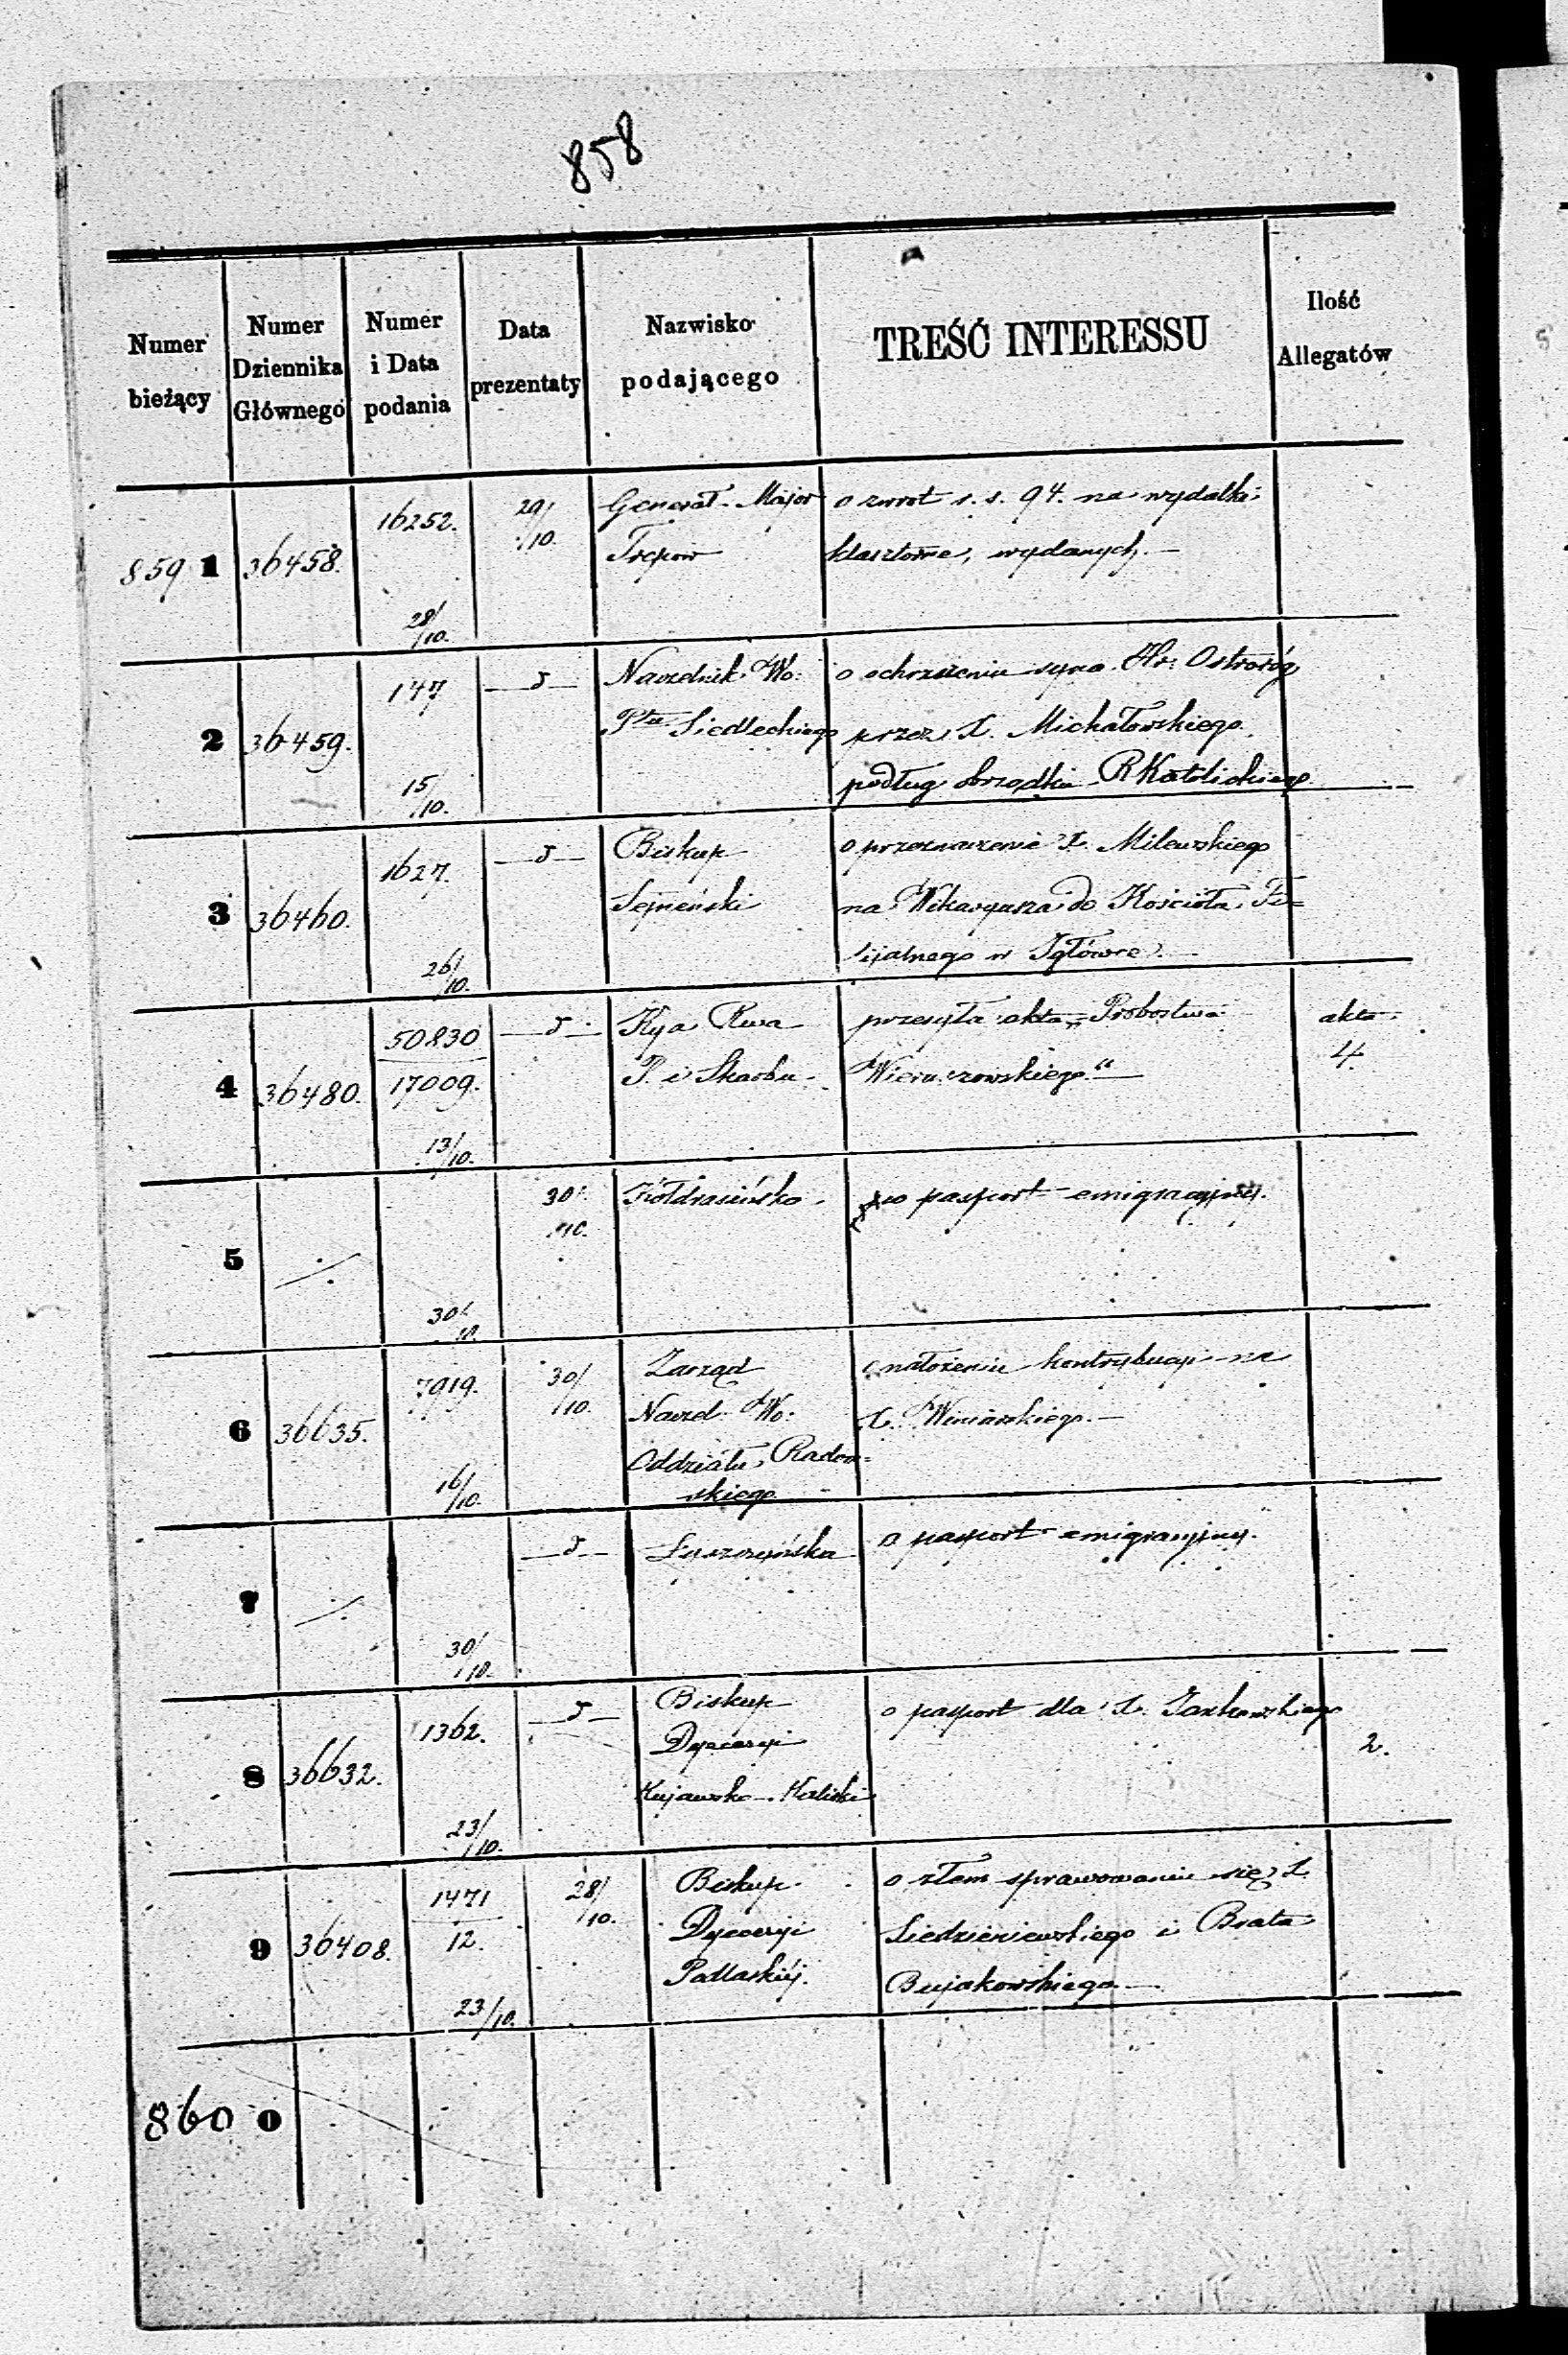 858
Numer bieżący
Numer Dziennika Głównego
Numer i Data podania
Data prezentaty
Nazwisko podającego
TREŚĆ INTERESSU
Ilość Allegatów
859 1 36458. 16252. 28/10. 29/10. Generał-Major o zwrot r. s. 94. na wydatki
Trepow klasztorne, wydanych.—
2 36459. 147 15/10. Naczelnik Wo: o ochrzceniu syna Hr: Ostroróg
Ptu Siedleckiego przez X. Michałowskiego
podług obrządku RKatolickiego
3 36460. 1627. 26/10. Biskup o przeznaczenie X. Milewskiego
Sejneński na Wikaryusza do Kościoła Fi=
lijalnego w Igłówce.—
4 36480. 50830 17009. 13/10. Kya Rwa przesyła akta „Probostwa akta
P. i Skarbu Wieruszowskiego.“— 4.
5 30/10. 30/10. o pasport emigracyjny.
6 36635. 7919. 16/10. 30/10. Zarząd o nałożeniu kontrybucyi na
Naczel. Wo: X. Winiarskiego.—
Oddziału Radom=
skiego
7 30/10. o pasport emigracyjny.
8 36632. 1362. 23/10. Biskup o pasport dla X. 2.
Dyecezyi
Kujawsko-Kaliski
9 36408. 1471 12. 23/10. 28/10. Biskup o złem sprawowaniu się X.
Dyecezyi i Brata
Podlaskiéj. Bujakowskiego—
860 0